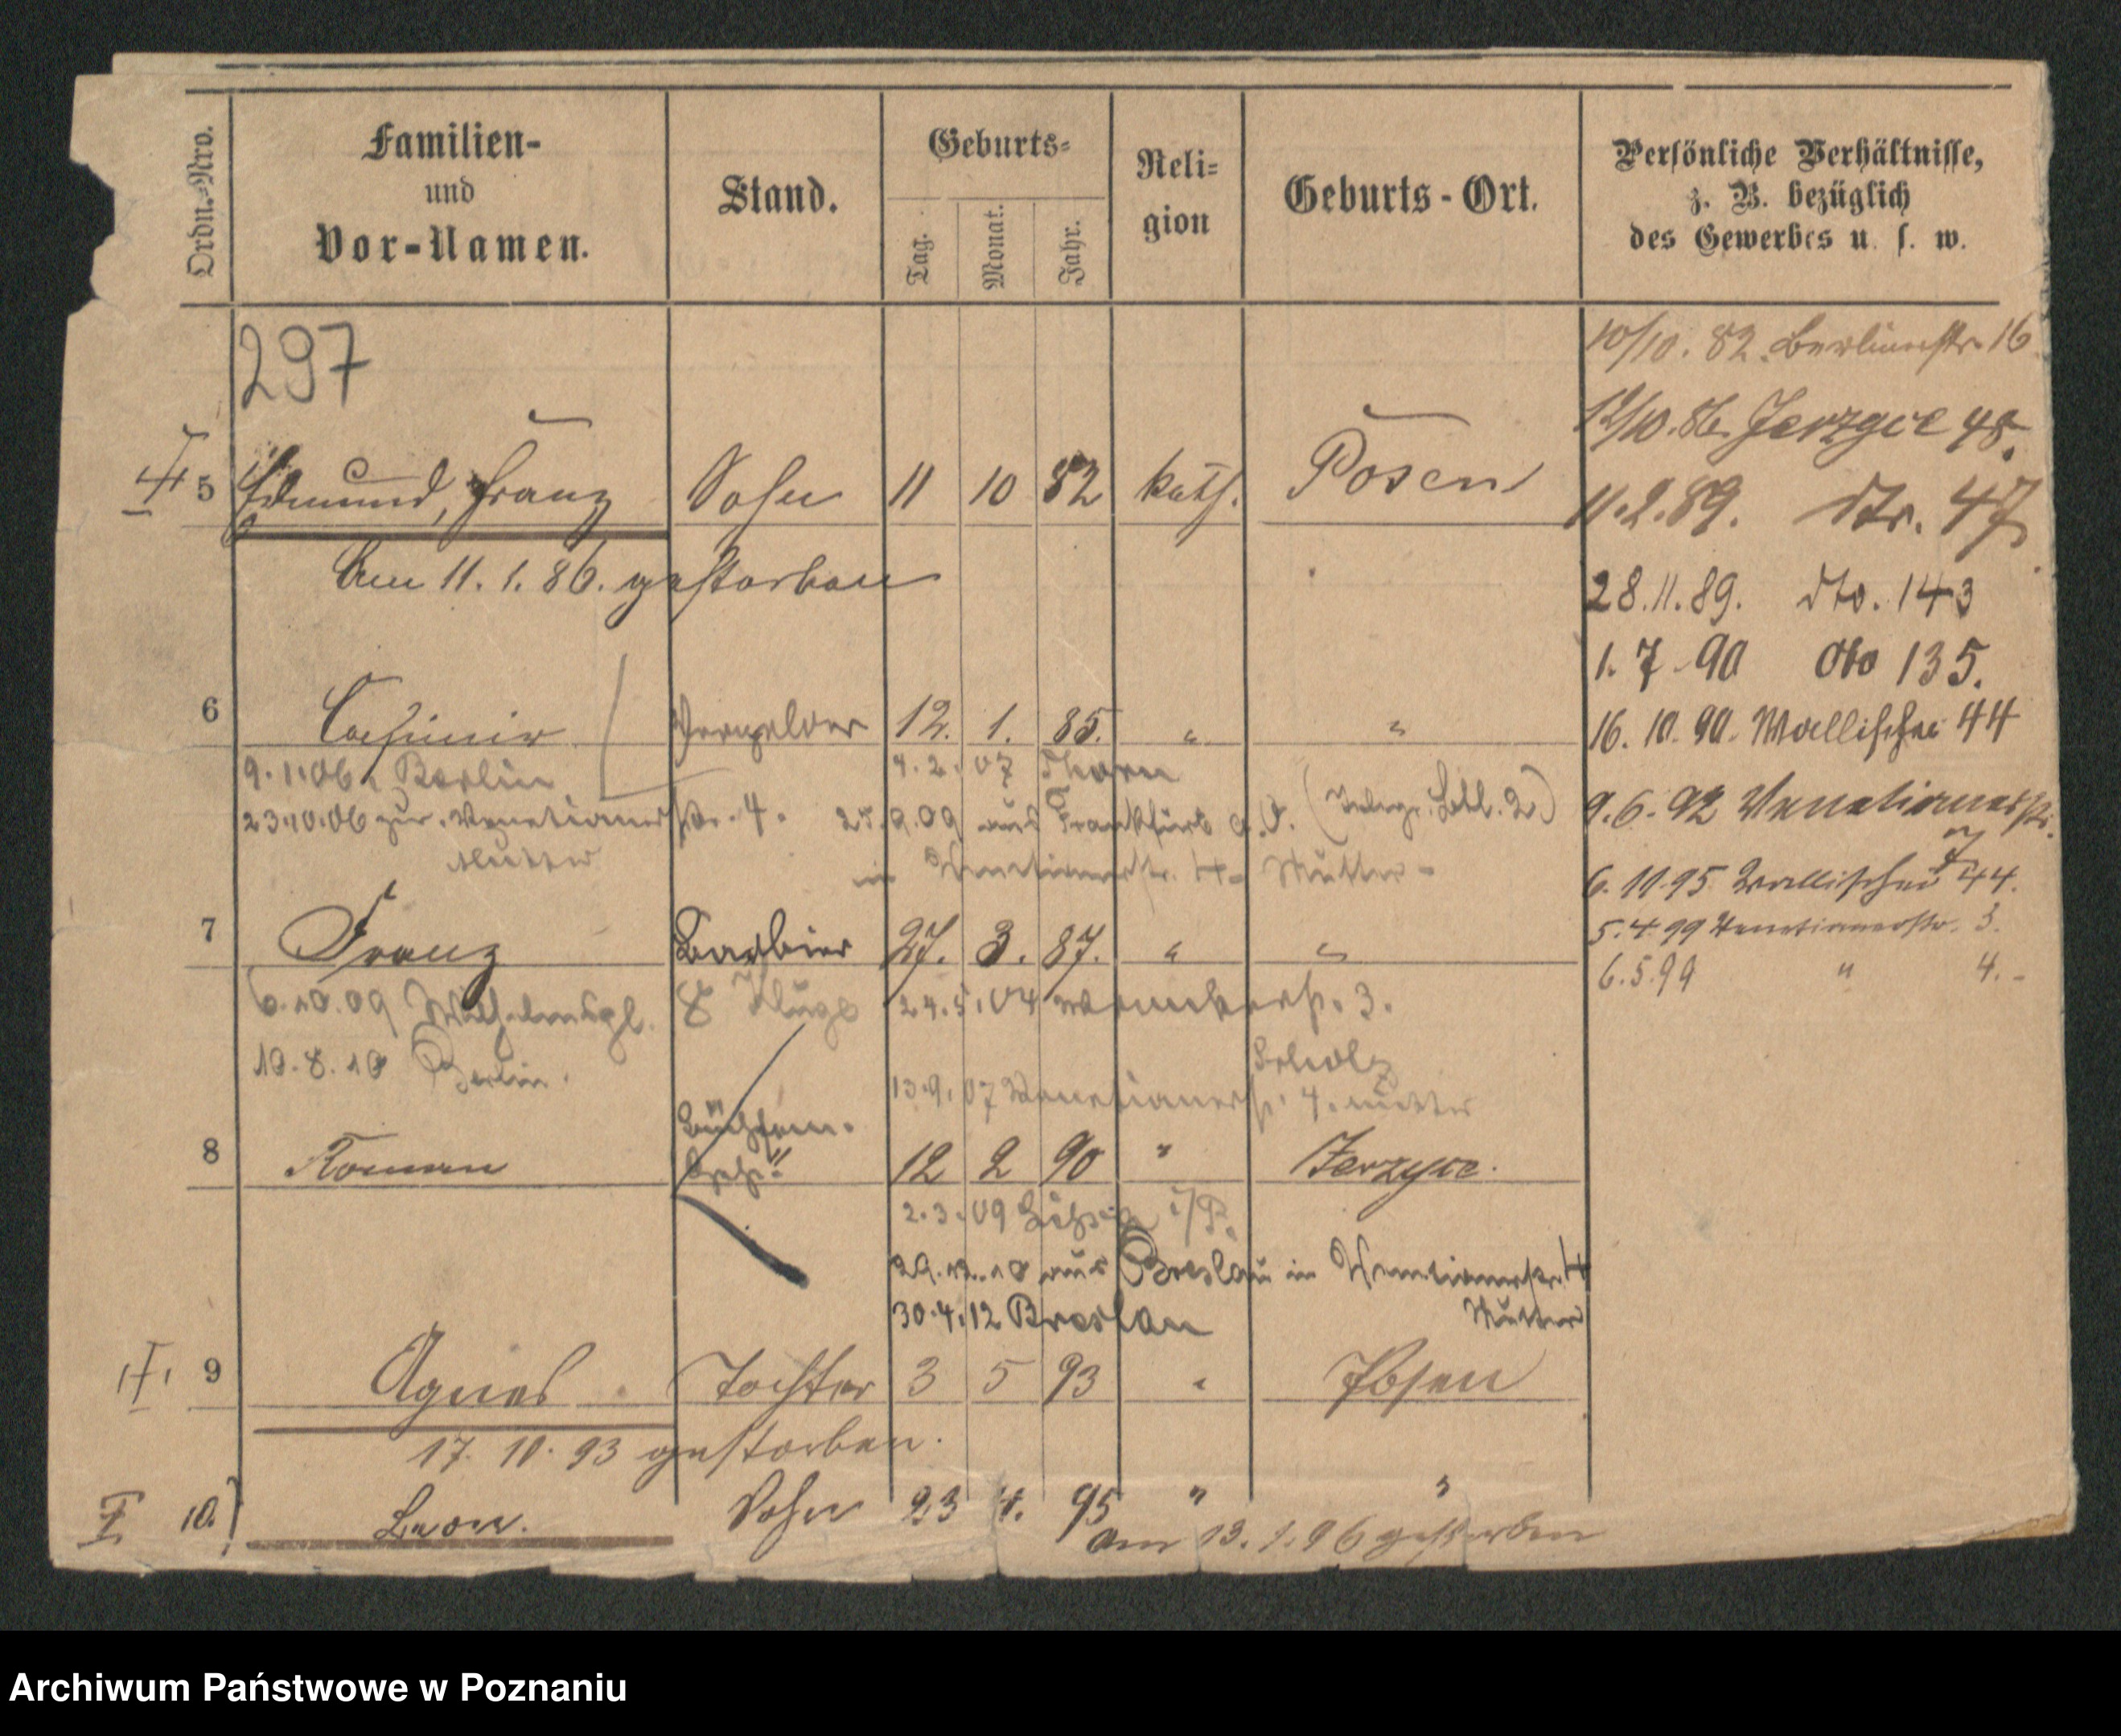 Ordn.-Nro.
Familien-
und
Vor-Namen.
Stand.
Geburts-
Tag.
Monat.
Jahr.
Reli-
gion
Geburts-Ort.
Persönliche Verhältnisse,
z. B. bezüglich
des Gewerbes u. s. w.
297
10/10. 82. Berlinerstr. 16
12/10. 86. Jerzyce 48.
5 Edmund, Franz Sohn 11 10 82 kath. Posen
11.2.89. dto. 47
Am 11. 1. 86. gestorben
28.11.89. dto. 143
1. 7 90 dto 135.
6 Casimir Vergolder 12. 1. 85. " "
16. 10. 90. Wallischei 44
9.1.06 Berlin 4.2.07 Thorn
23.10.06 zur. Venetianerstr. 4. 25.9.09 aus Frankfurt a.O. 2)
9.6.92 Venetianerstr. 7
Mutter in Venetianerstr. 4 Mutter
6. 11 95 Wallischei 44.
7 Franz Barbier 27. 3. 87. " "
5.4.99 Venetianerstr. 3.
6.5.99 " 4.-
6.10.09 Wilhelmspl. 8 Kluge 24.5.04 3.
10.8.10 Berlin. Scholz
13.9.07 Venetianerstr. 4. Mutter
8 Roman 12 2 90 " Jerzyce.
2.3.09
29.12.10 aus Breslau in Venetianerstr. 4
30.4.12 Breslau Mutter
9 Agnes Tochter 3 5 93 " Posen
17. 10. 93 gestorben.
10. Leon. Sohn 23 4. 95 " "
am 13. 1. 96 gestorben
Archiwum Państwowe w Poznaniu